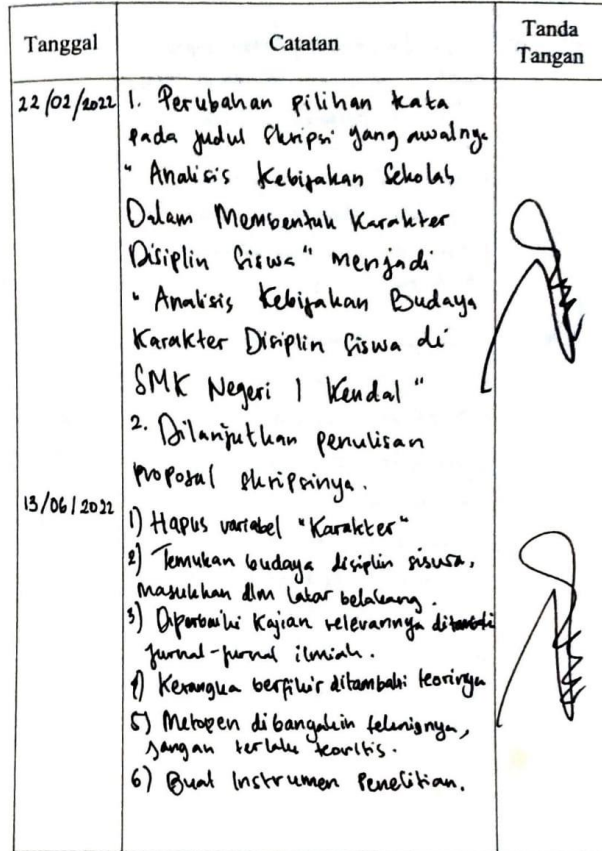 Tanggal Catatan Tanda Tangan
22/02/2022 1. Perubahan pilihan kata
pada judul Skripsi yang awalnya
" Analisis Kebijakan Sekolah
Dalam Membentuk Karakter
Disiplin Siswa" menjadi
" Analisis Kebijakan Budaya
Karakter Disiplin Siswa di
SMK Negeri 1 Kendal "
2. Dilanjutkan penulisan
proposal skripsinya.
13/06/2022
1) Hapus variabel "Karakter"
2) Temukan budaya disiplin siswa,
masukkan dlm latar belakang.
3) Diperbaiki Kajian relevannya ditambahi
jurnal-jurnal ilmiah.
4) Kerangka berfikir ditambahi teorinya
5) Metopen dibanyakin teknisnya,
jangan terlalu teoritis.
6) Buat Instrumen Penelitian.